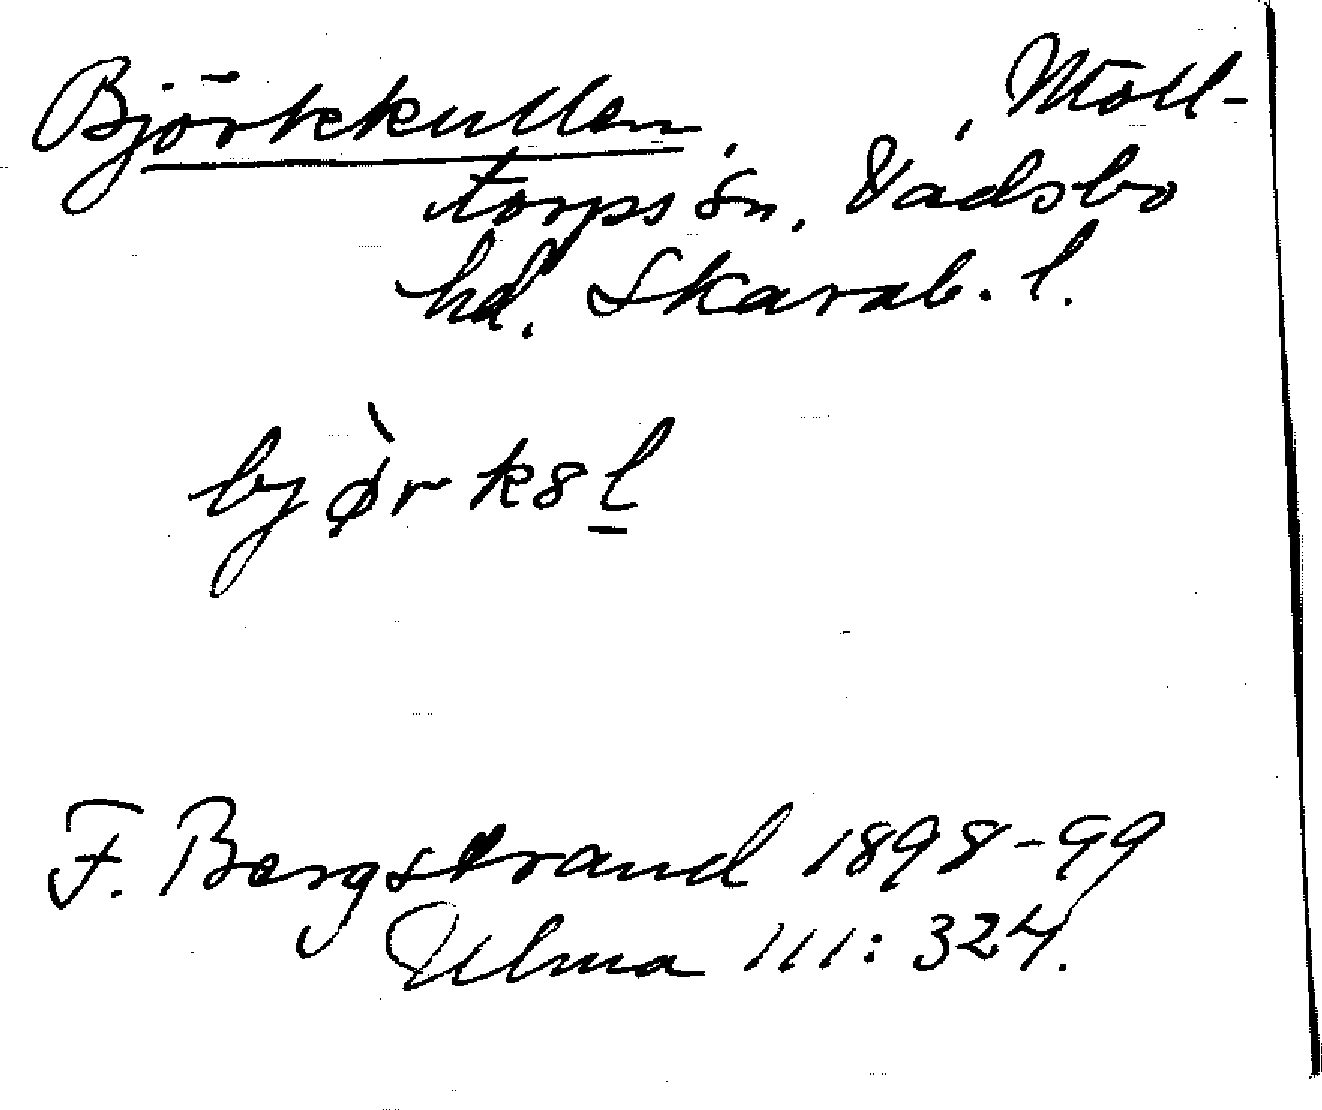 Björkkullen, Möll-
torps sn, Vadsbo
hd. Skarab. l.
bjø̀rk8l̲
F. Bergstrand 1898-99
Ulma 111:324.